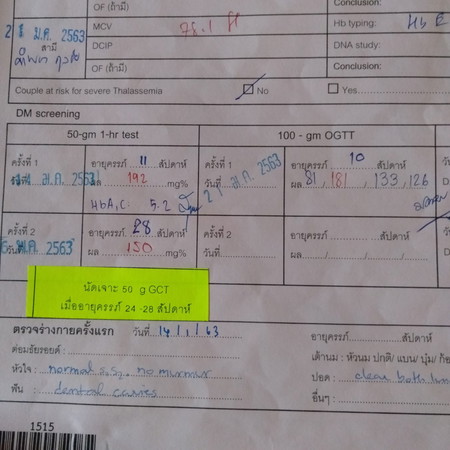 OF (ถ้ามี)
Conclusion:
2 1 ม.ค. 2563
MCV 78.1
Hb typing: Hb E
สามี
DCIP
DNA study:
OF (ถ้ามี)
Conclusion:
Couple at risk for severe Thalassemia
No
Yes
DM screening
50-gm 1-hr test
100 - gm OGTT
ครั้งที่ 1
อายุครรภ์ 11 สัปดาห์
ครั้งที่ 1
อายุครรภ์ 10 สัปดาห์
วันที่ ม.ค. 2563
ผล 192 mg%
วันที่ 21 ม.ค. 2563
ผล 81, 181, 133, 126
HbA1C: 5.2
ครั้งที่ 2
อายุครรภ์ 28 สัปดาห์
ครั้งที่ 2
อายุครรภ์ สัปดาห์
วันที่ 2563
ผล 150 mg%
วันที่
ผล
นัดเจาะ 50 g GCT
เมื่ออายุครรภ์ 24 -28 สัปดาห์
ตรวจร่างกายครั้งแรก วันที่ 14/1/63
อายุครรภ์ สัปดาห์
ต่อมธัยรอยด์ :
เต้านม : หัวนม ปกติ/ แบน/ บุ๋ม/
หัวใจ : normal S1S2, no murmur
ปอด : clear both
ฟัน : dental caries
อื่นๆ :
1515